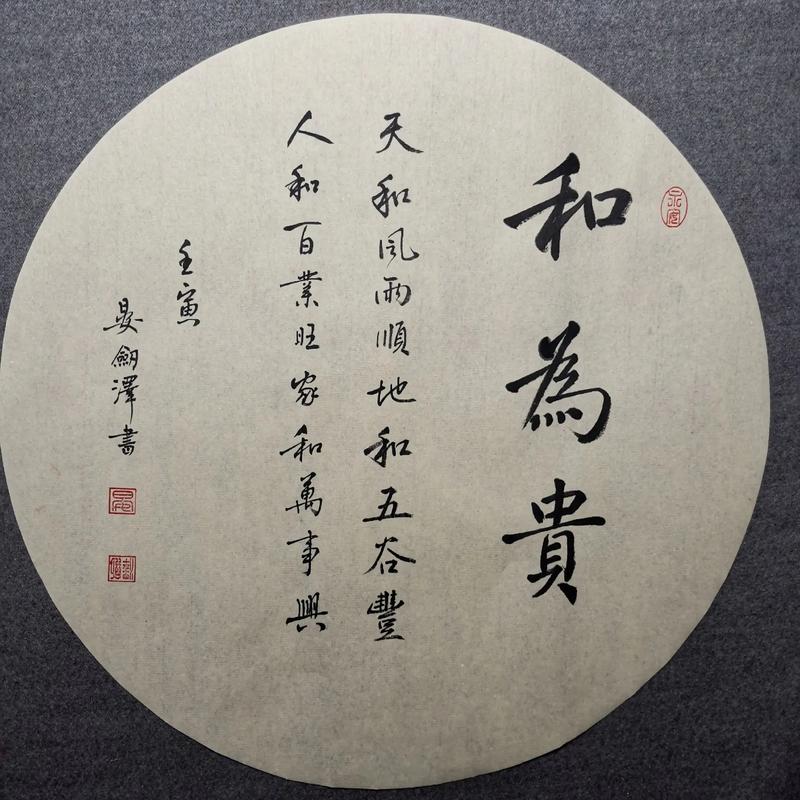 和為貴
天和風雨順地和五谷豐
人和百業旺家和萬事興
壬寅
晏劍澤書